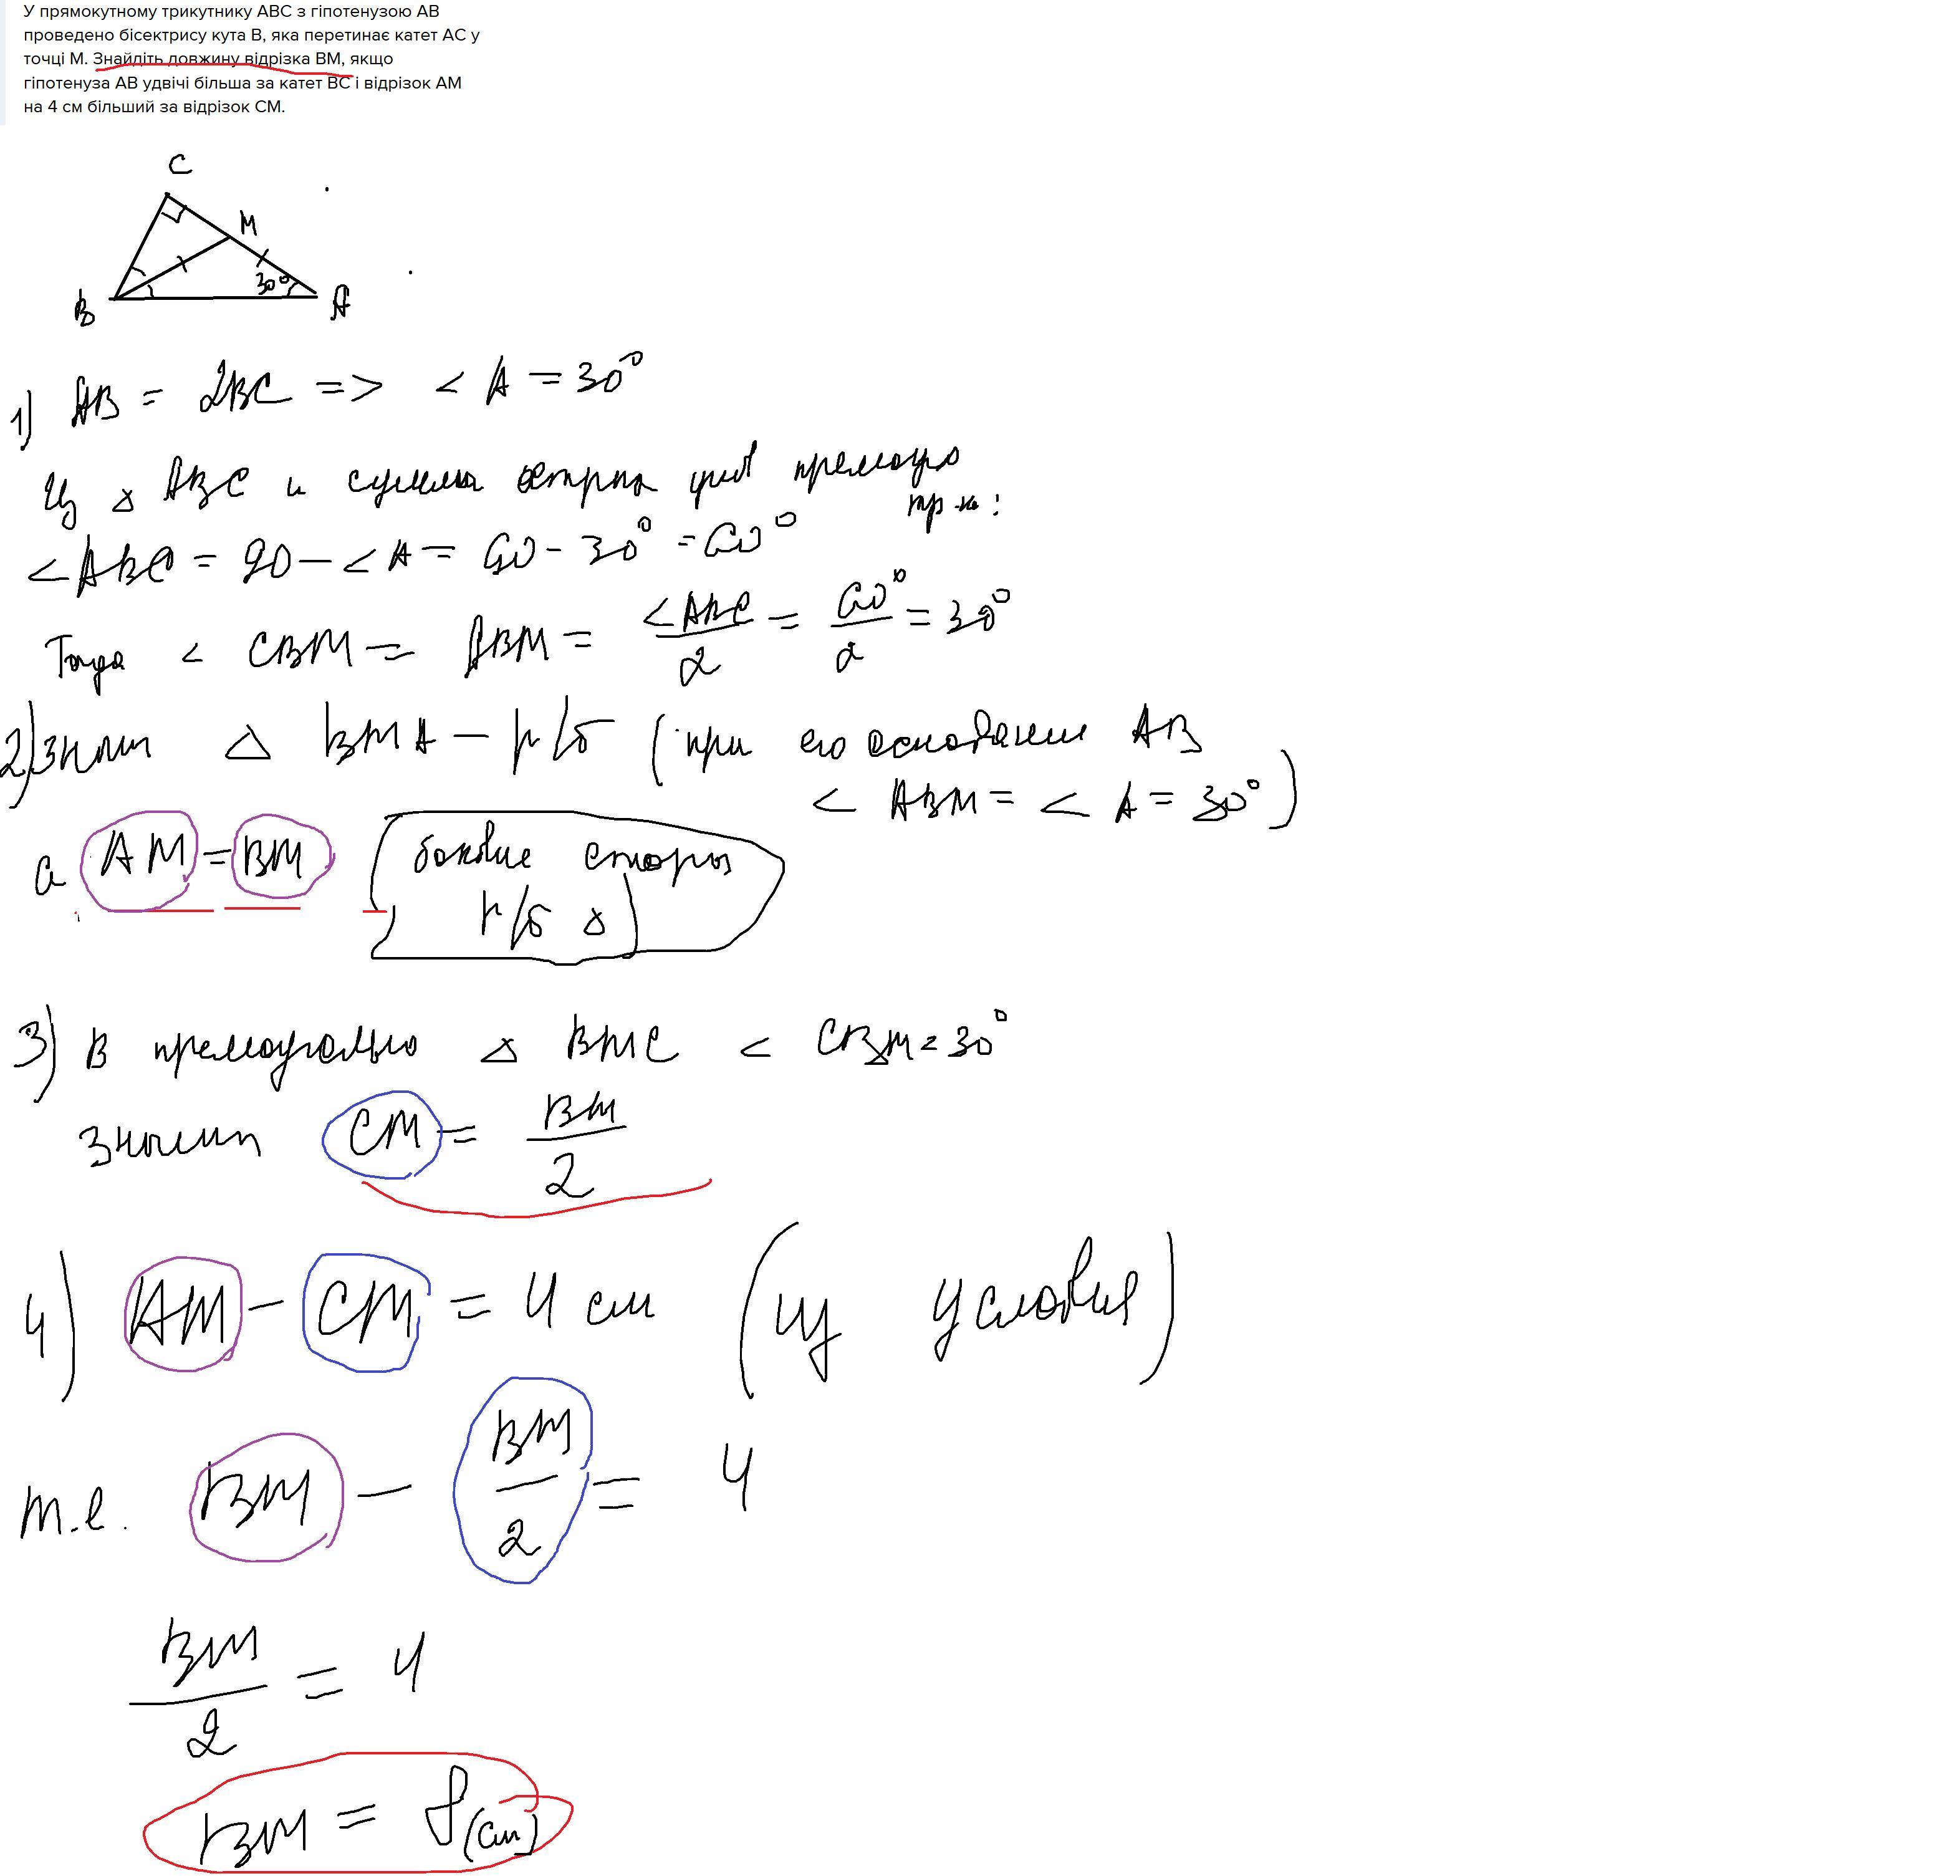 У прямокутному трикутнику ABC з гіпотенузою AB
проведено бісектрису кута B, яка перетинає катет AC у
точці M. Знайдіть довжину відрізка BM, якщо
гіпотенуза AB удвічі більша за катет BC і відрізок AM
на 4 см більший за відрізок CM.
C
M
30°
B
A
1) AB = 2BC => < A = 30°
Из △ ABC и сумма
тр-ка:
< ABC = 90 - < A = 90 - 30° = 60°
Тогда < CBM = ABM = < ABC / 2 = 60° / 2 = 30°
2) △ BMA - р/б (при его основании AB
< ABM = < A = 30°)
а AM = BM (боковые стороны
р/б △)
3) В △ BMC < CBM = 30°
значит CM = BM / 2
4) AM - CM = 4 см (из условия)
т.е. BM - BM / 2 = 4
BM / 2 = 4
BM = 8 (см)